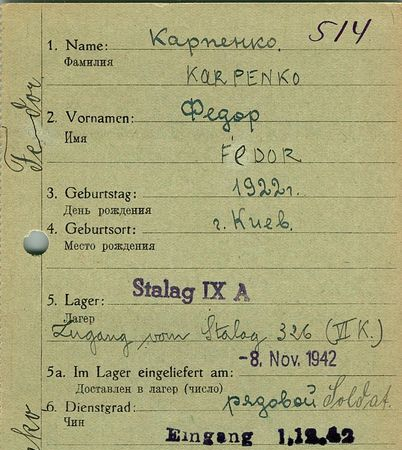 514
1. Name: Карпенко.
Фамилия
KARPENKO
2. Vornamen: Федор
Имя
FEDOR
3. Geburtstag: 1922 г.
День рождения
4. Geburtsort: г. Киев.
Место рождения
5. Lager: Stalag IX A
Лагер
Zugang vom Stalag 326 (VI K.)
-8. Nov. 1942
5a. Im Lager eingeliefert am:
Доставлен в лагер (число)
6. Dienstgrad: рядовой Soldat.
Чин
Eingang 1.12.42
Fedor
ko